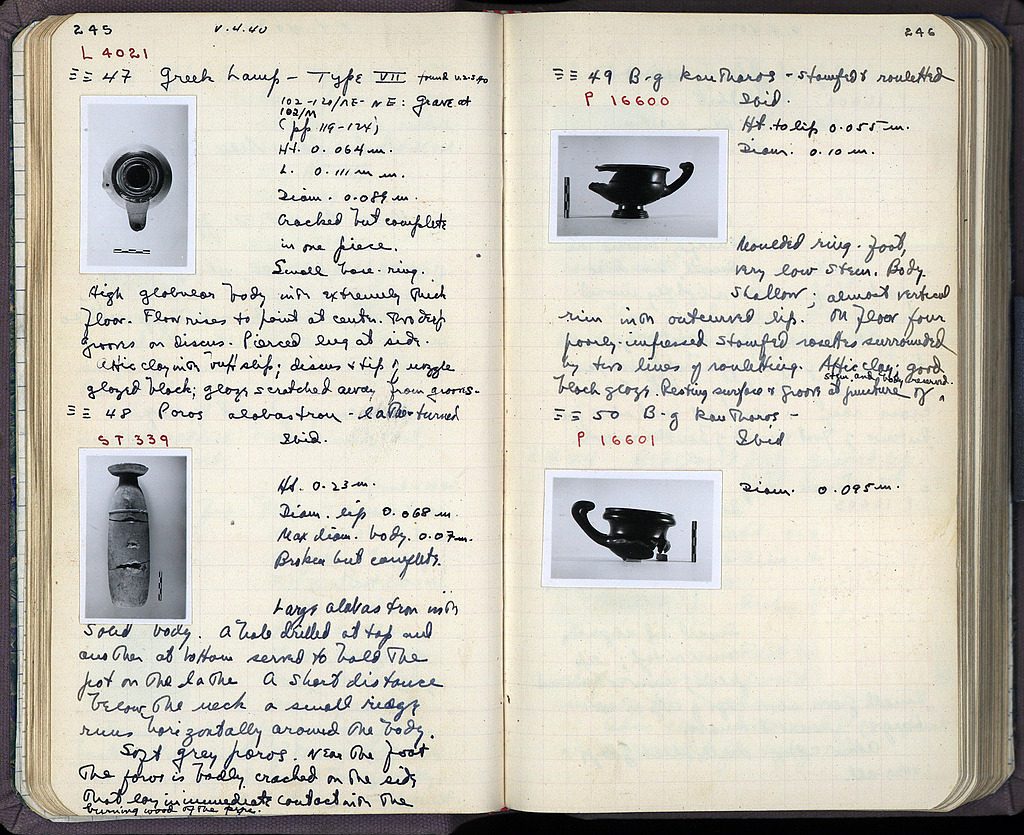 245
V.4.40
L 4021
ΞΞ 47 Greek Lamp - Type VII found
102-120/ΛΕ- ΝΕ: Grave at
102/Μ
(pp 119-124)
Ht. 0.064 m.
L. 0.111 m.
Diam. 0.089 m.
Cracked but complete
in one piece.
Small base-ring.
High globular body with extremely thick
floor. Floor rises to point at center. Two deep
grooves on discus. Pierced lug at side.
Attic clay with buff slip; discus & tip of nozzle
glazed black; glaze scratched away from grooves-
ΞΞ 48 Poros alabastron - lathe-turned
ST 339
Ibid.
Ht. 0.23 m.
Diam. lip 0.068 m.
Max diam. body. 0.07 m.
Broken but complete.
Large alabastron with
solid body. A hole drilled at top and
another at bottom served to hold the
pot on the lathe A short distance
below the neck a small ridge
runs horizontally around the body.
Soft grey poros. Near the foot
the poros is badly cracked on the side
that lay in immediate contact with the
burning wood of the pyre.
246
ΞΞ 49 B-g kantharos - stamped & rouletted
P 16600
Ibid.
Ht. to lip 0.055 m.
Diam. 0.10 m.
Moulded ring-foot,
very low stem. Body
shallow; almost vertical
rim with outcurved lip. On floor four
poorly-impressed stamped rosettes surrounded
by two lines of rouletting. Attic clay; good
black glaze. Resting surface & groove at juncture of
stem and body reserved.
ΞΞ 50 B-g kantharos -
P 16601
Ibid
Diam. 0.095 m.